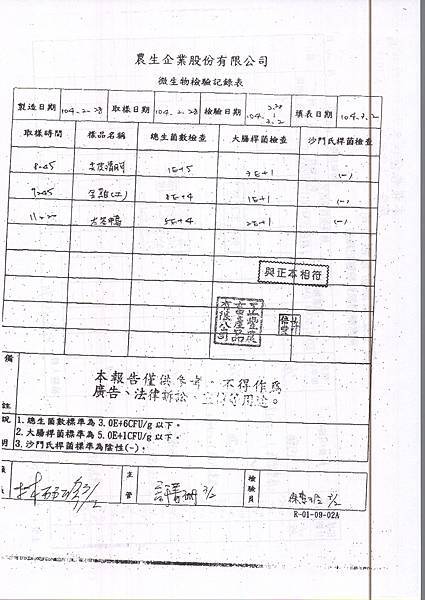 農生企業股份有限公司
微生物檢驗記錄表
製造日期 104.2.28 取樣日期 104.2.28 檢驗日期 104. 2.28 3.2 填表日期 104.3.2
取樣時間 樣品名稱 總生菌數檢查 大腸桿菌檢查 沙門氏桿菌檢查
8:45 1E+5 3E+1 (-)
9:45 8E+4 1E+1 (-)
5E+4 2E+1 (-)
與正本相符
備註
本報告僅供參考，不得作為
廣告、法律訴訟、宣傳等用途。
說明
1.總生菌數標準為3.0E+6CFU/g以下。
2.大腸桿菌標準為5.0E+1CFU/g以下。
3.沙門氏桿菌標準為陰性(-)。
主管 3/2
檢驗員 3/2
R-01-09-02A